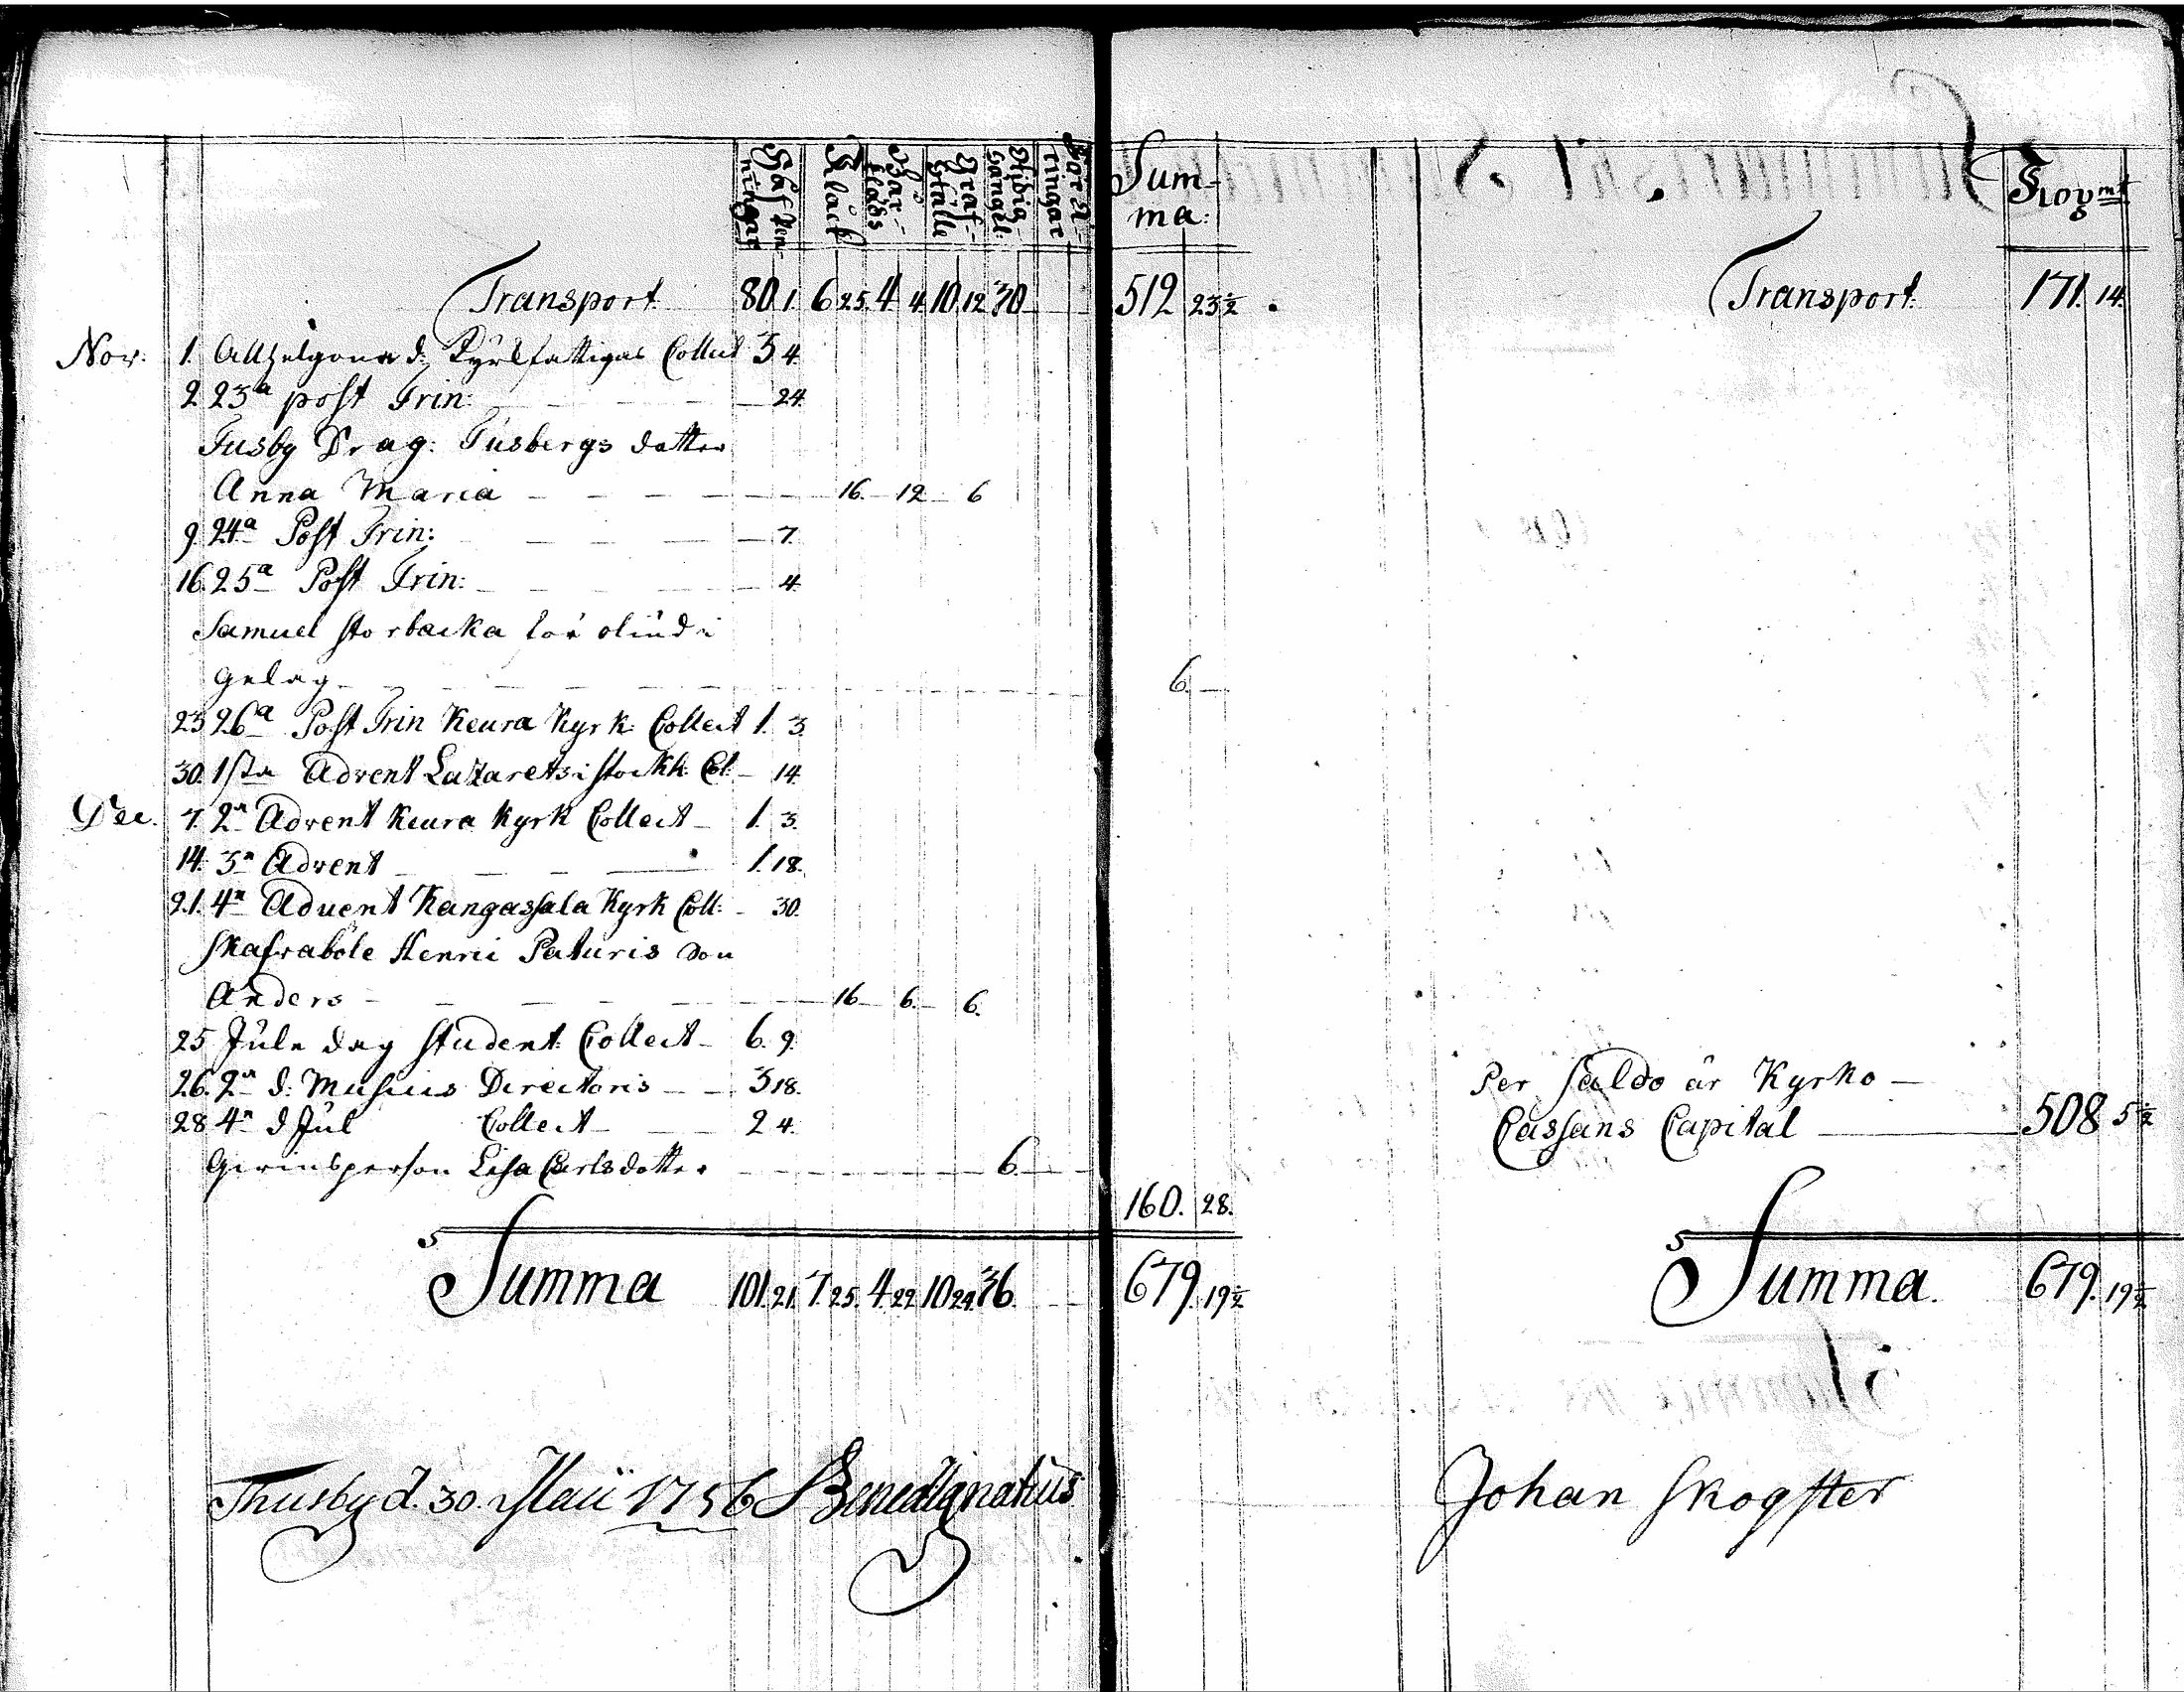 Håfwen-
ningar
Klåck
Bår-
kläds
Graf-
ställe
Städia-
Böter
ringar
Sum-
ma:
Kopmt
Transport 80. 1. 6 25. 4 4. 10. 12. 30 512 23½
Transport 171. 14.
Nov: 1. Allhelgona d: Kyrkfattigas Collect 3 4.
2 23a post Trin: 24.
Tusby Drag: Tusbergs dotter
Anna Maria 16. 12 6
9 24a Post Trin: 7.
16. 25a Post Trin: 4.
Samuel Storbacka för oliud i
gelag 6.
23 26a Post Trin Keura Kyrk: Collect 1. 3.
30. 1sta Advent Lazarets i Stockh: Col: 14.
Dec. 7. 2a Advent Keura Kyrk Collect 1. 3.
14. 3a Advent 1. 18.
21. 4a Advent Kangasala Kyrk Coll: 30.
Skafraböle Henric Paturis son
Anders 16 6. 6.
25 Jule dag Student Collect 6. 9.
26. 2a d: Musices Directoris 3 18.
28 4a d Jul Collect 2 4.
Per Saldo är Kyrko
Cassans Capital 508 5½
Lisa Carlsdotter 6.
160. 28.
Summa 101. 21. 7. 25. 4. 22. 10 24. 36. 679. 19½
Summa. 679. 19½
Thusby d. 30. Maii 1756 Bened Ignatius
Johan Skogster